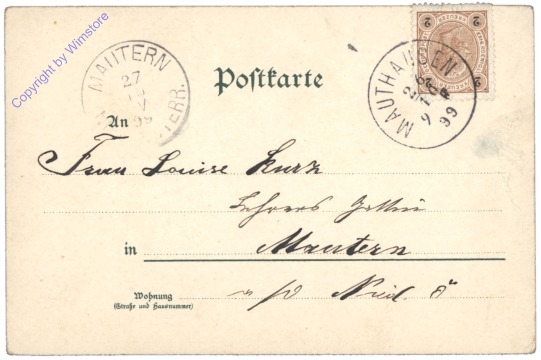 Copyright by Wimstore
MAUTERN
27
Postkarte
MAUTHAUSEN
99
2 2
2 2
An
Frau Louise Kurz
Lehrers Gattin
in Mautern
Wohnung
(Straße und Hausnummer)